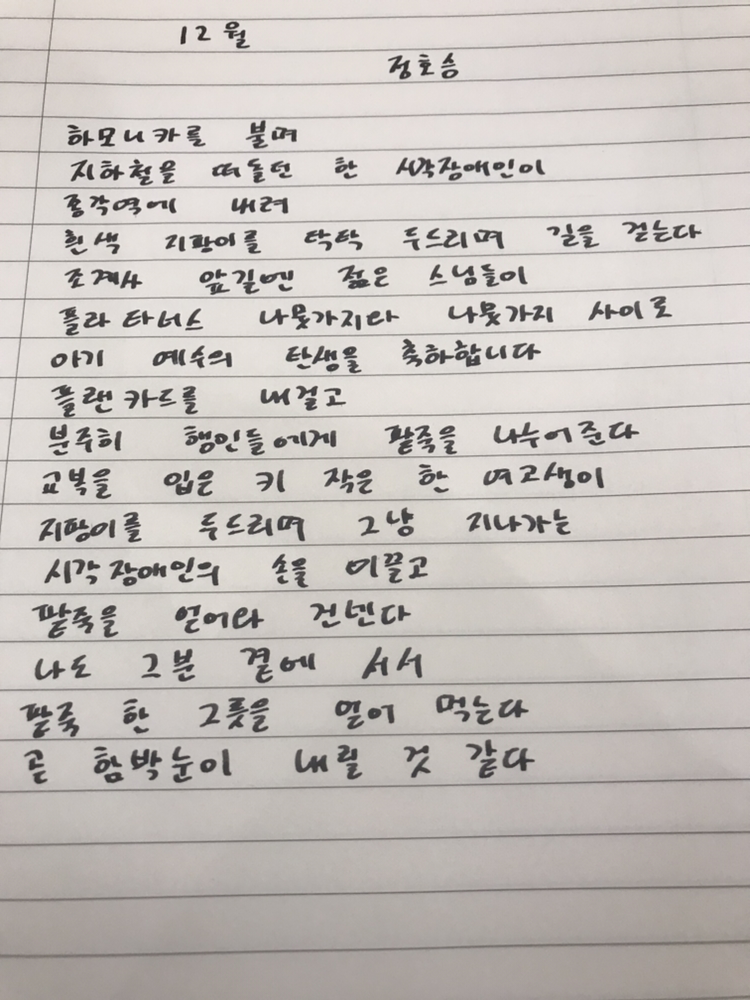 12월
정호승
하모니카를 불며
지하철을 떠돌던 한 시각장애인이
종각역에 내려
흰색 지팡이를 탁탁 두드리며 길을 걷는다
조계사 앞길엔 젊은 스님들이
플라타너스 나뭇가지와 나뭇가지 사이로
아기 예수의 탄생을 축하합니다
플랜카드를 내걸고
분주히 행인들에게 팥죽을 나누어준다
교복을 입은 키 작은 한 여고생이
지팡이를 두드리며 그냥 지나가는
시각장애인의 손을 이끌고
팥죽을 얻어와 건넨다
나도 그분 곁에 서서
팥죽 한 그릇을 얻어 먹는다
곧 함박눈이 내릴 것 같다